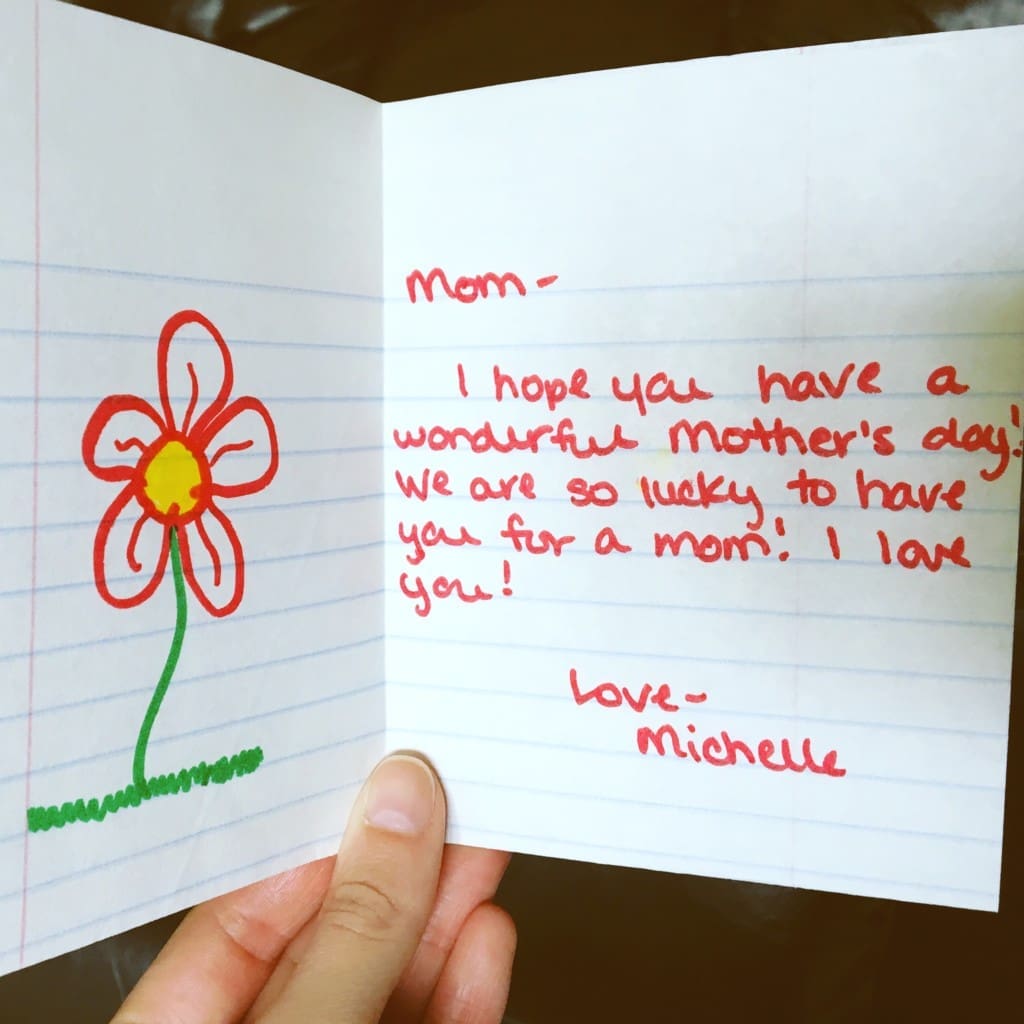 Mom-
I hope you have a
wonderful Mother's day!
We are so lucky to have
you for a mom! I love
you!
Love-
Michelle